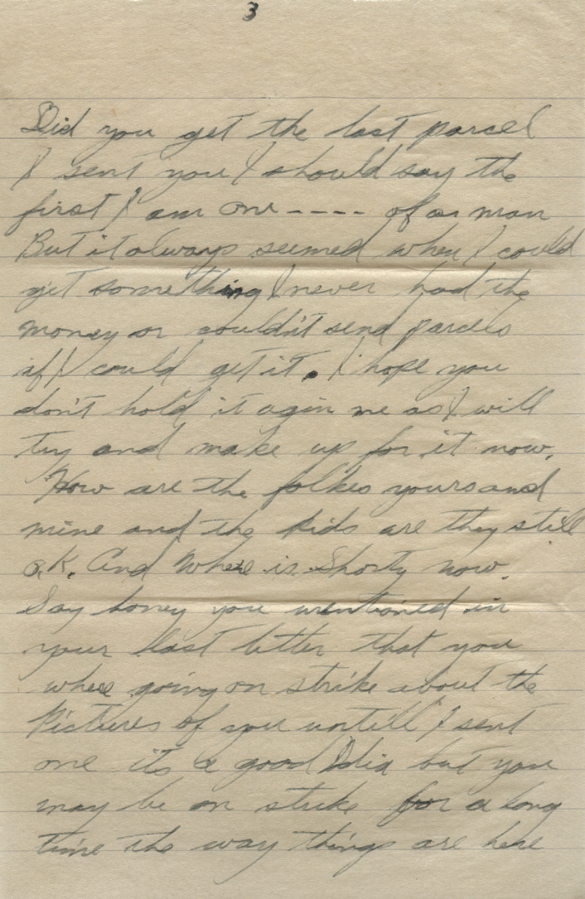 3
Did you get the last parcel
I sent you I should say the
first I am one ---- of a man
But it always seemed when I could
get something I never had the
money or couldn't send parcels
if I could get it. I hope you
don't hold it agin me as I will
try and make up for it now.
How are the folkes yours and
mine and the kids are they still
O.K. And Where is Shorty now.
Say honey you mentioned in
your last letter that you
where going on strike about the
Pictures of you untill I sent
one its a good Idia but you
may be on strike for a long
time the way things are here